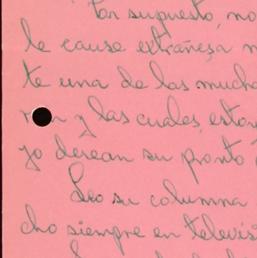 Por supuesto, no
le cause extrañeza
te una de las mucha
y las cuales, esto
yo desean su pronto
Leo su columna
cho siempre en televis